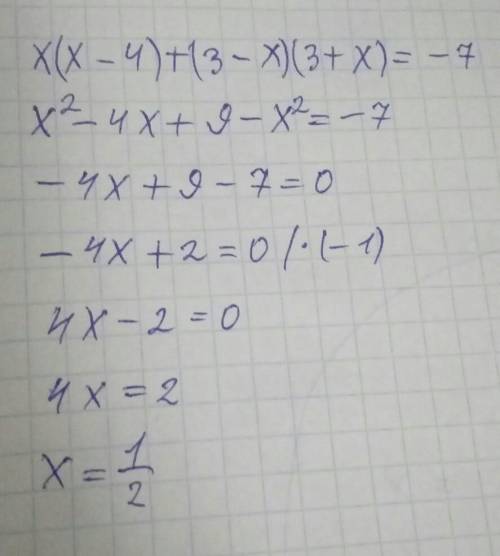 x(x - 4) + (3 - x)(3 + x) = -7
x² - 4x + 9 - x² = -7
-4x + 9 - 7 = 0
-4x + 2 = 0 / · (-1)
4x - 2 = 0
4x = 2
x = 1/2